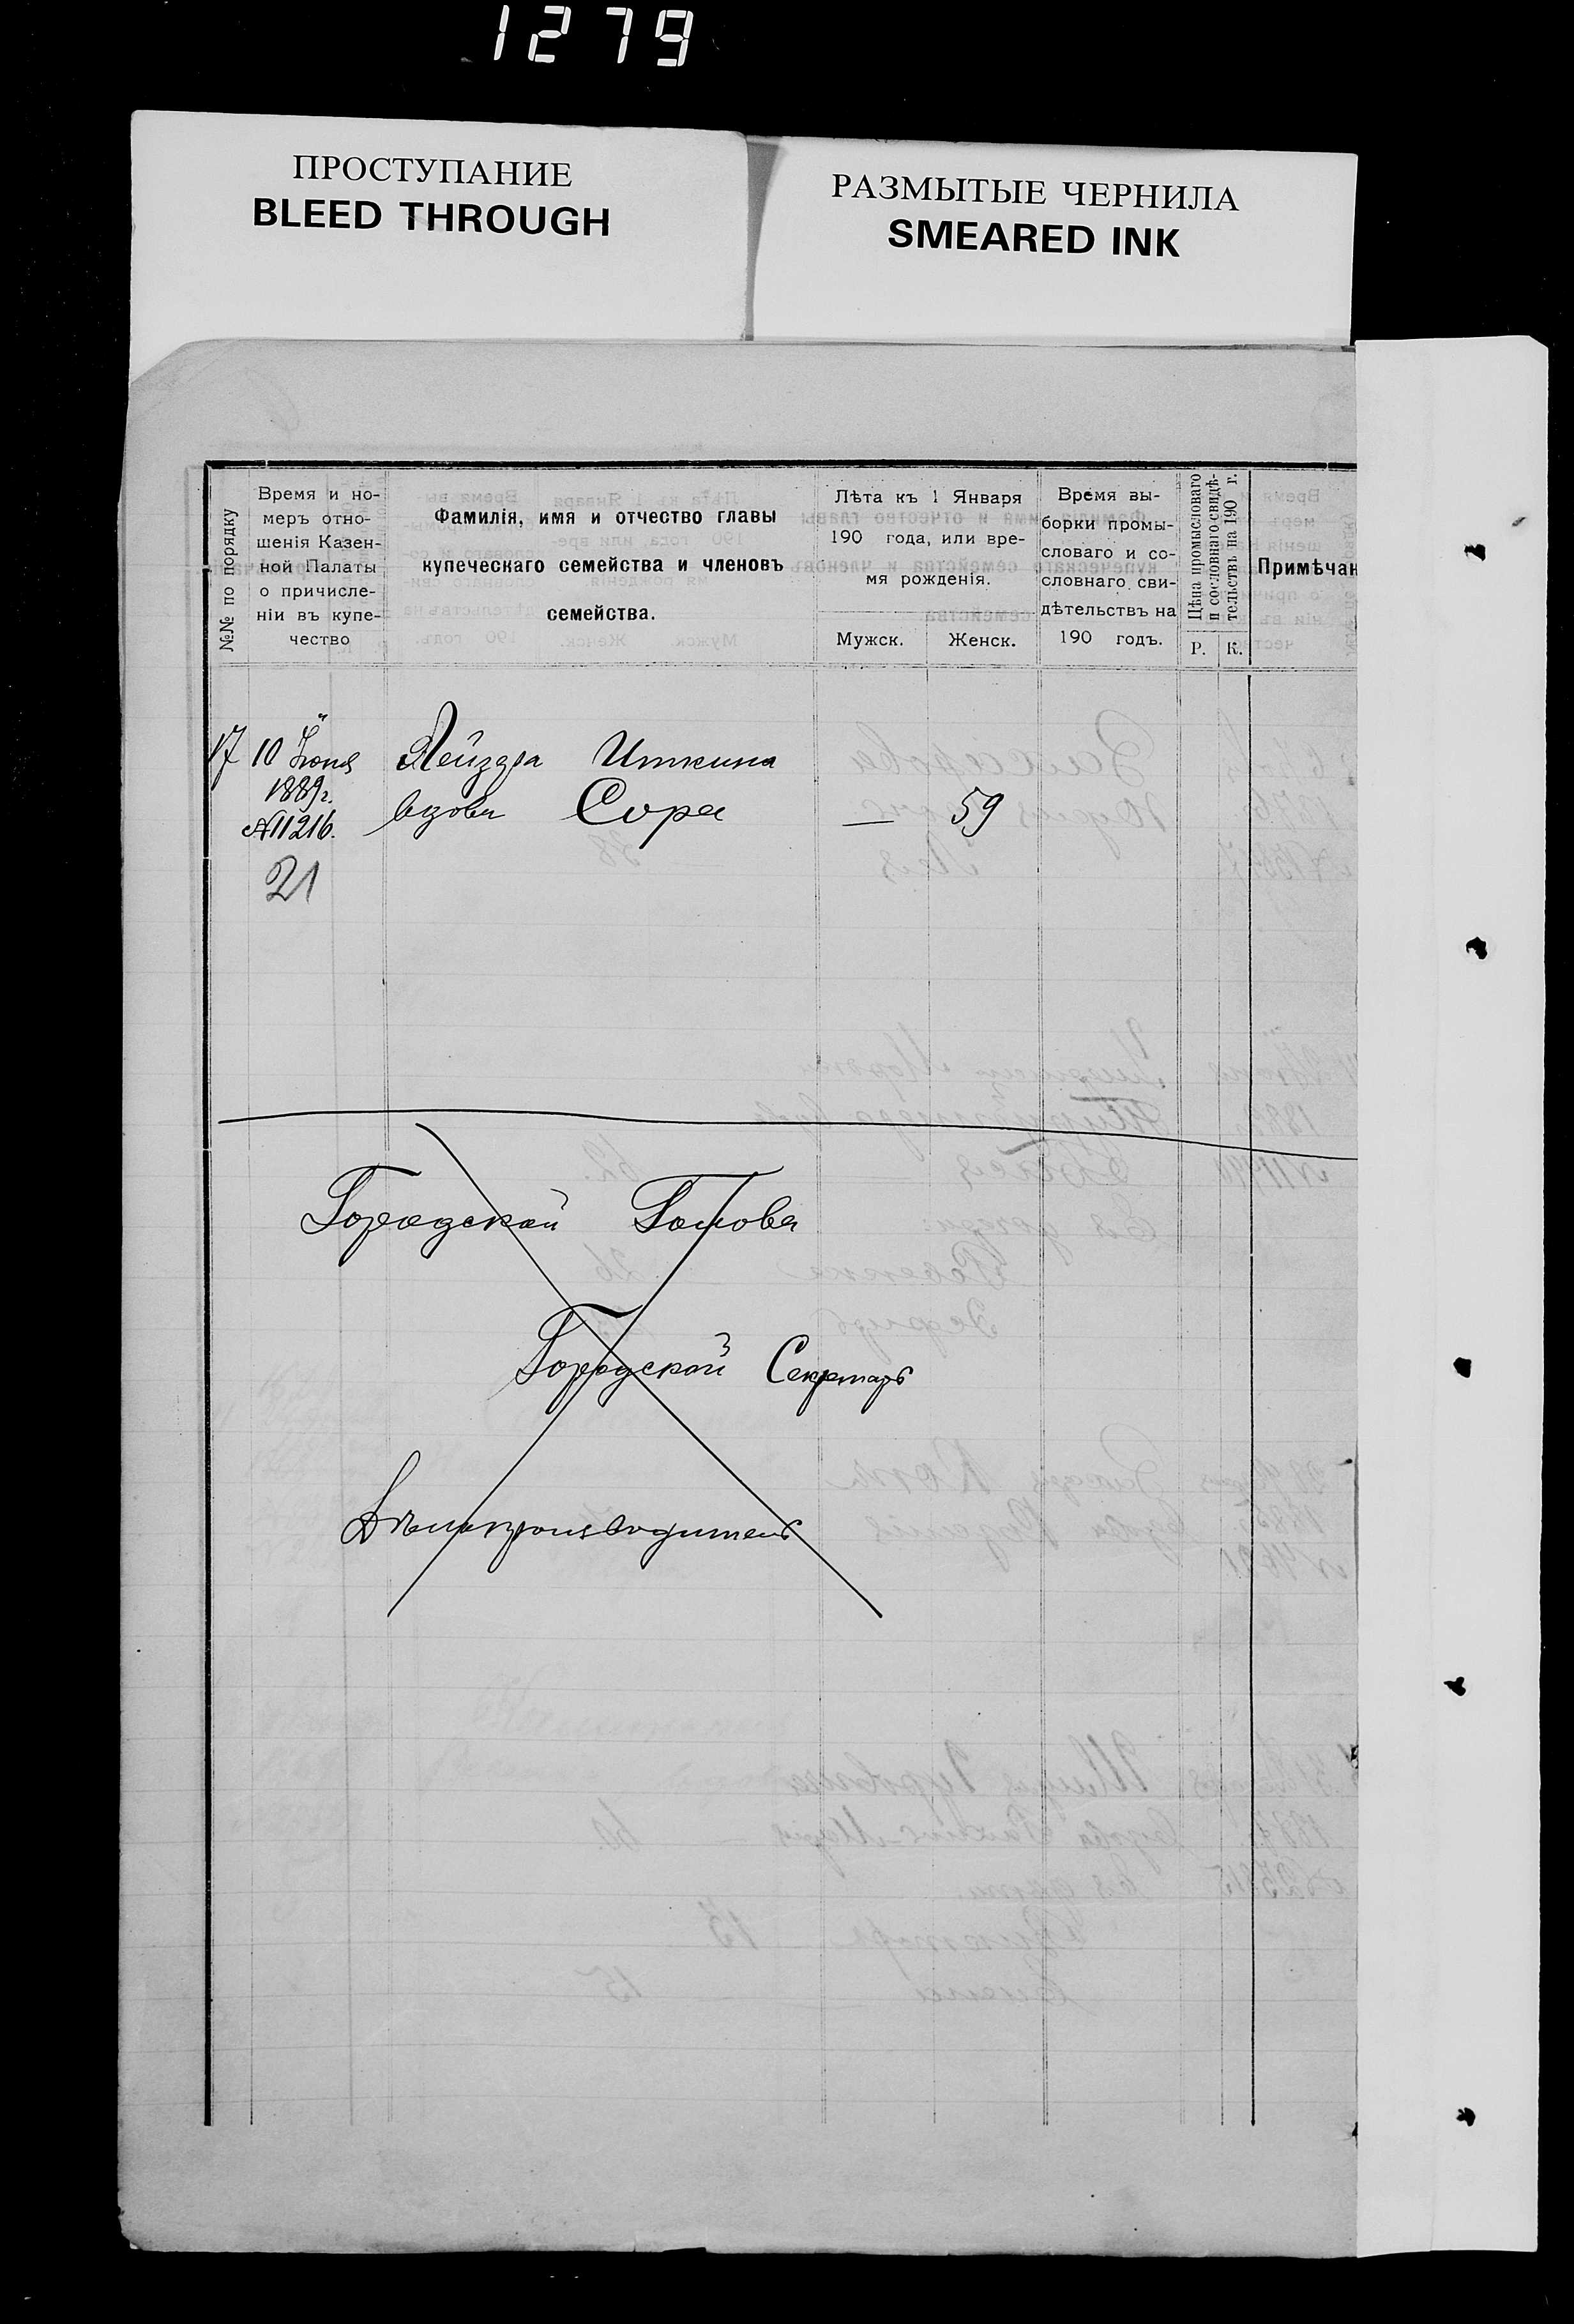 1279
ПРОСТУПАНИЕ
BLEED THROUGH
РАЗМЫТЫЕ ЧЕРНИЛА
SMEARED INK
№№ по порядку
Время и но-
меръ отно-
шенія Казен-
ной Палаты
о причисле-
ніи въ купе-
чество
Фамилія, имя и отчество главы
купеческаго семейства и членовъ
семейства.
Лѣта къ 1 Января
190 года, или вре-
мя рожденія.
Мужск. Женск.
Время вы-
борки промы-
словаго и со-
словнаго сви-
дѣтельствъ на
190 годъ.
Цѣна промысловаго
и сословнаго свидѣ-
тельствъ на 190 г.
Р. К.
Примѣчан
17 10 Іюня Лейзера Иткина
1889г. вдова Сора — 59
№11216.
21
Городской Голова
Городской Секретарь
Дѣлопроизводитель